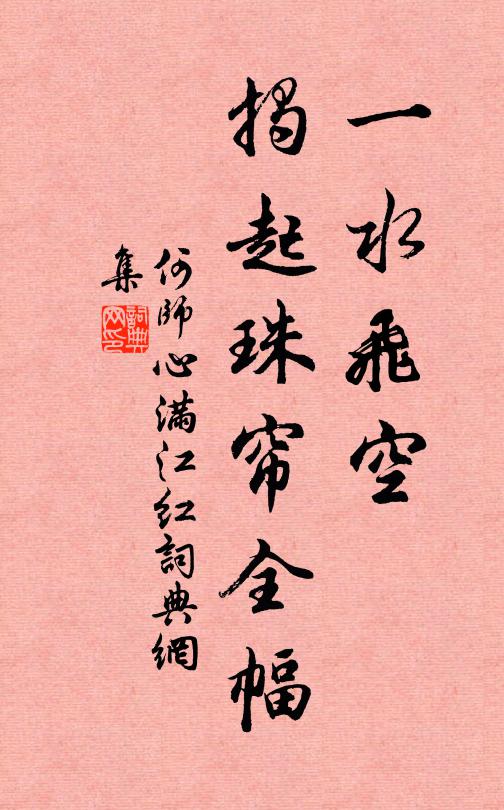 一水飛空
揭起珠帘全幅
何師心滿江红詞典網
集
詞典
网印